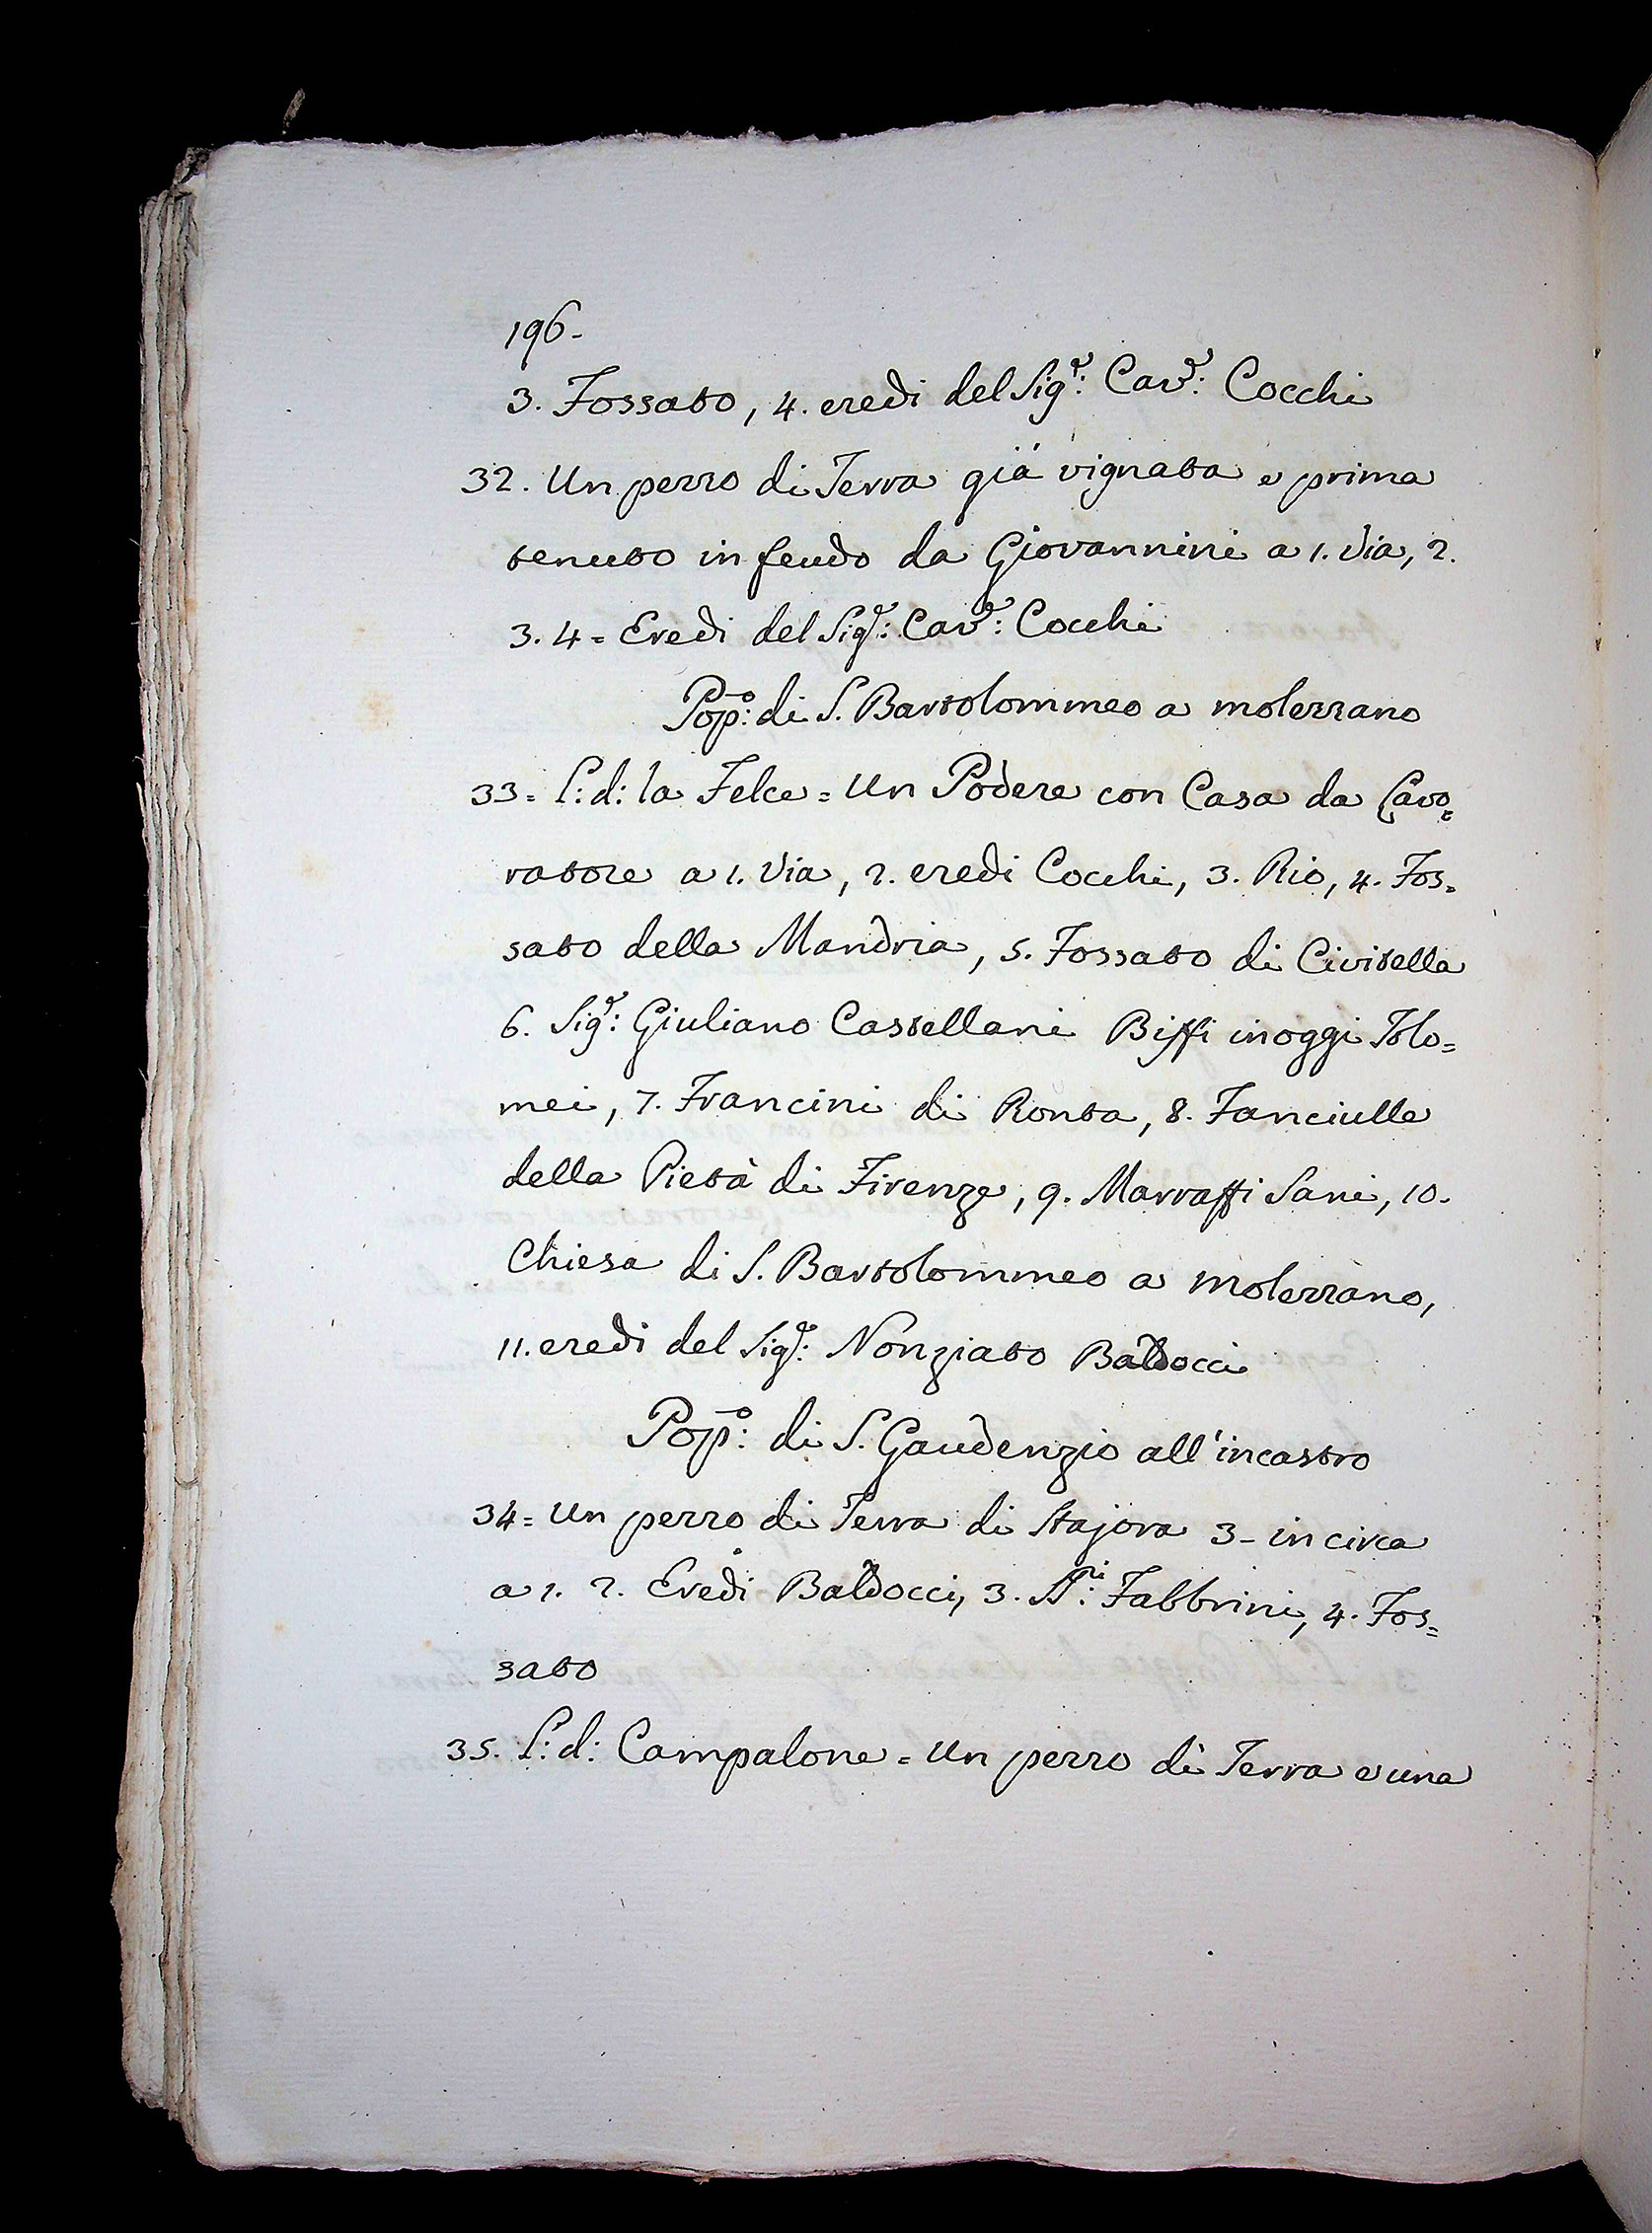 196.
3. Fossato, 4. eredi del Sig.r: Cav.r: Cocchi
32. Un pezzo di Terra già vignata e prima
tenuto in feudo da Giovannini a 1. Via, 2.
3. 4 = Eredi del Sig.r: Cav.r: Cocchi
Pop.o: di S. Bartolommeo a molezzano
33 = l: d: la Felce = Un Podere con Casa da Lavo=
ratore a 1. Via, 2. eredi Cocchi, 3. Rio, 4. Fos=
sato della Mandria, 5. Fossato di Civitella
6. Sig.r: Giuliano Castellani Biffi inoggi Tolo=
mei, 7. Francini di Ronta, 8. Fanciulle
della Pietà di Firenze, 9. Marraffi Sani, 10.
Chiesa di S. Bartolommeo a molezzano,
11. eredi del Sig.r: Nonziato Baldocci
Pop.o: di S. Gaudenzio all'incastro
34 = Un pezzo di Terra di Stajora 3 - in circa
a 1. 2. Eredi Baldocci, 3. SS.ri: Fabbrini, 4. Fos=
sato
35. l: d: Campalone = Un pezzo di Terra e una